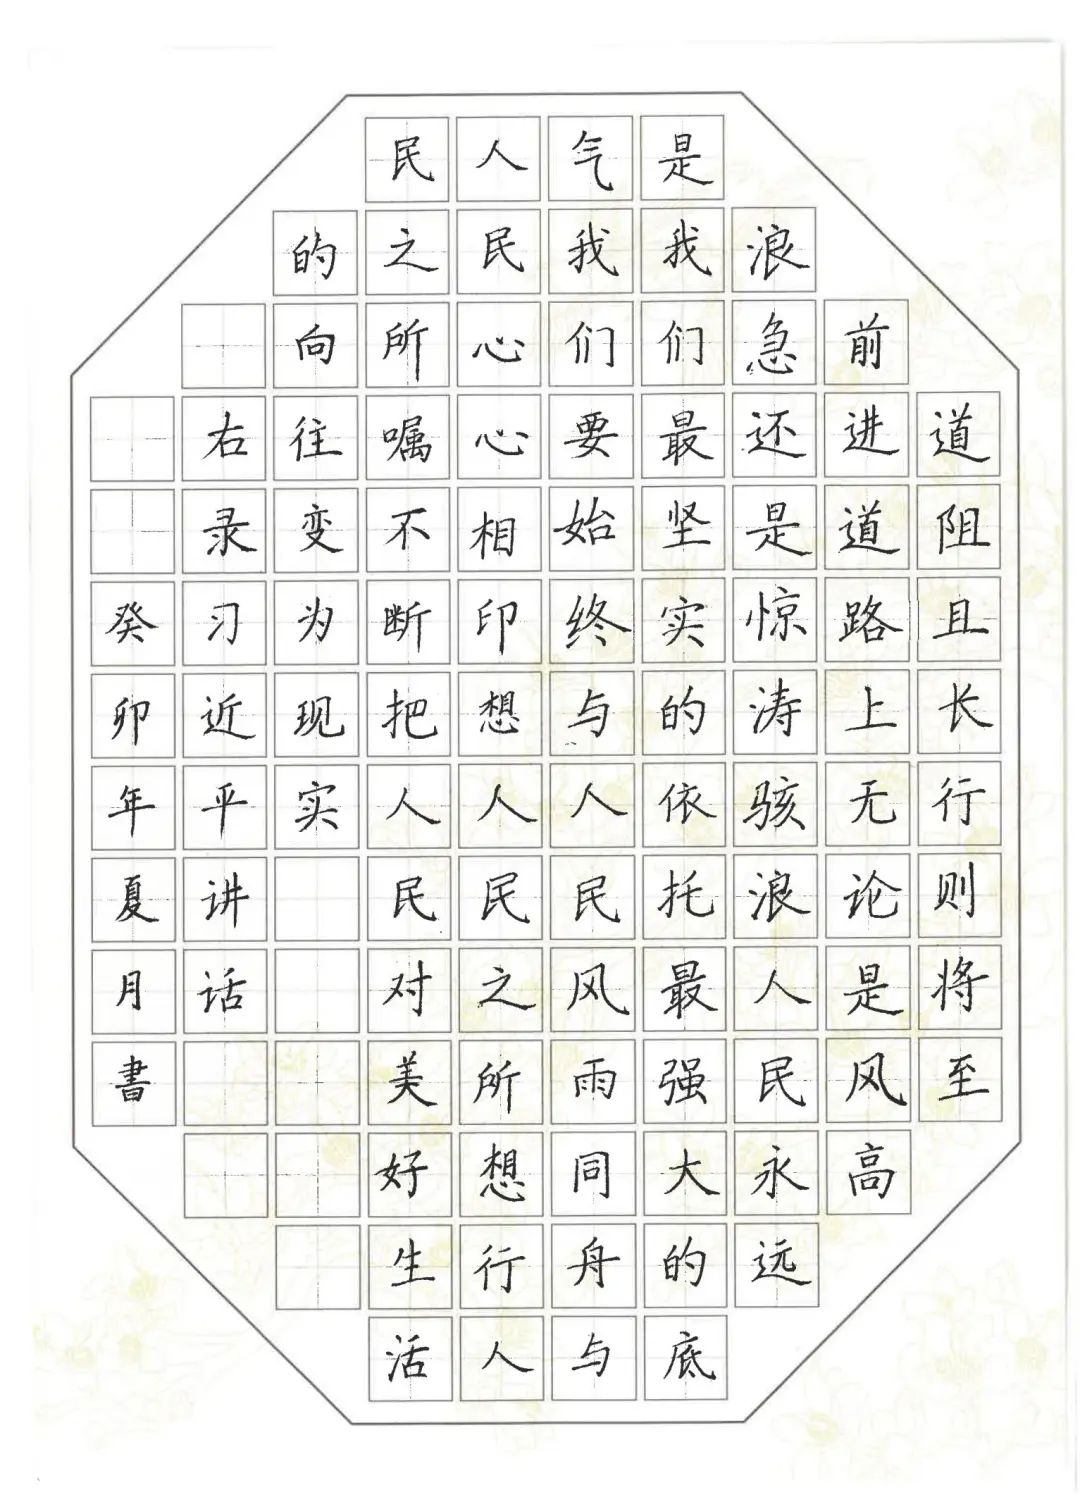 道阻且长行则将至
前进道路上无论是风高
浪急还是惊涛骇浪人民永远
是我们最坚实的依托最强大的底
气我们要始终与人民风雨同舟与
人民心心相印想人民之所想行人
民之所嘱不断把人民对美好生活
的向往变为现实
右录习近平讲话
癸卯年夏月書